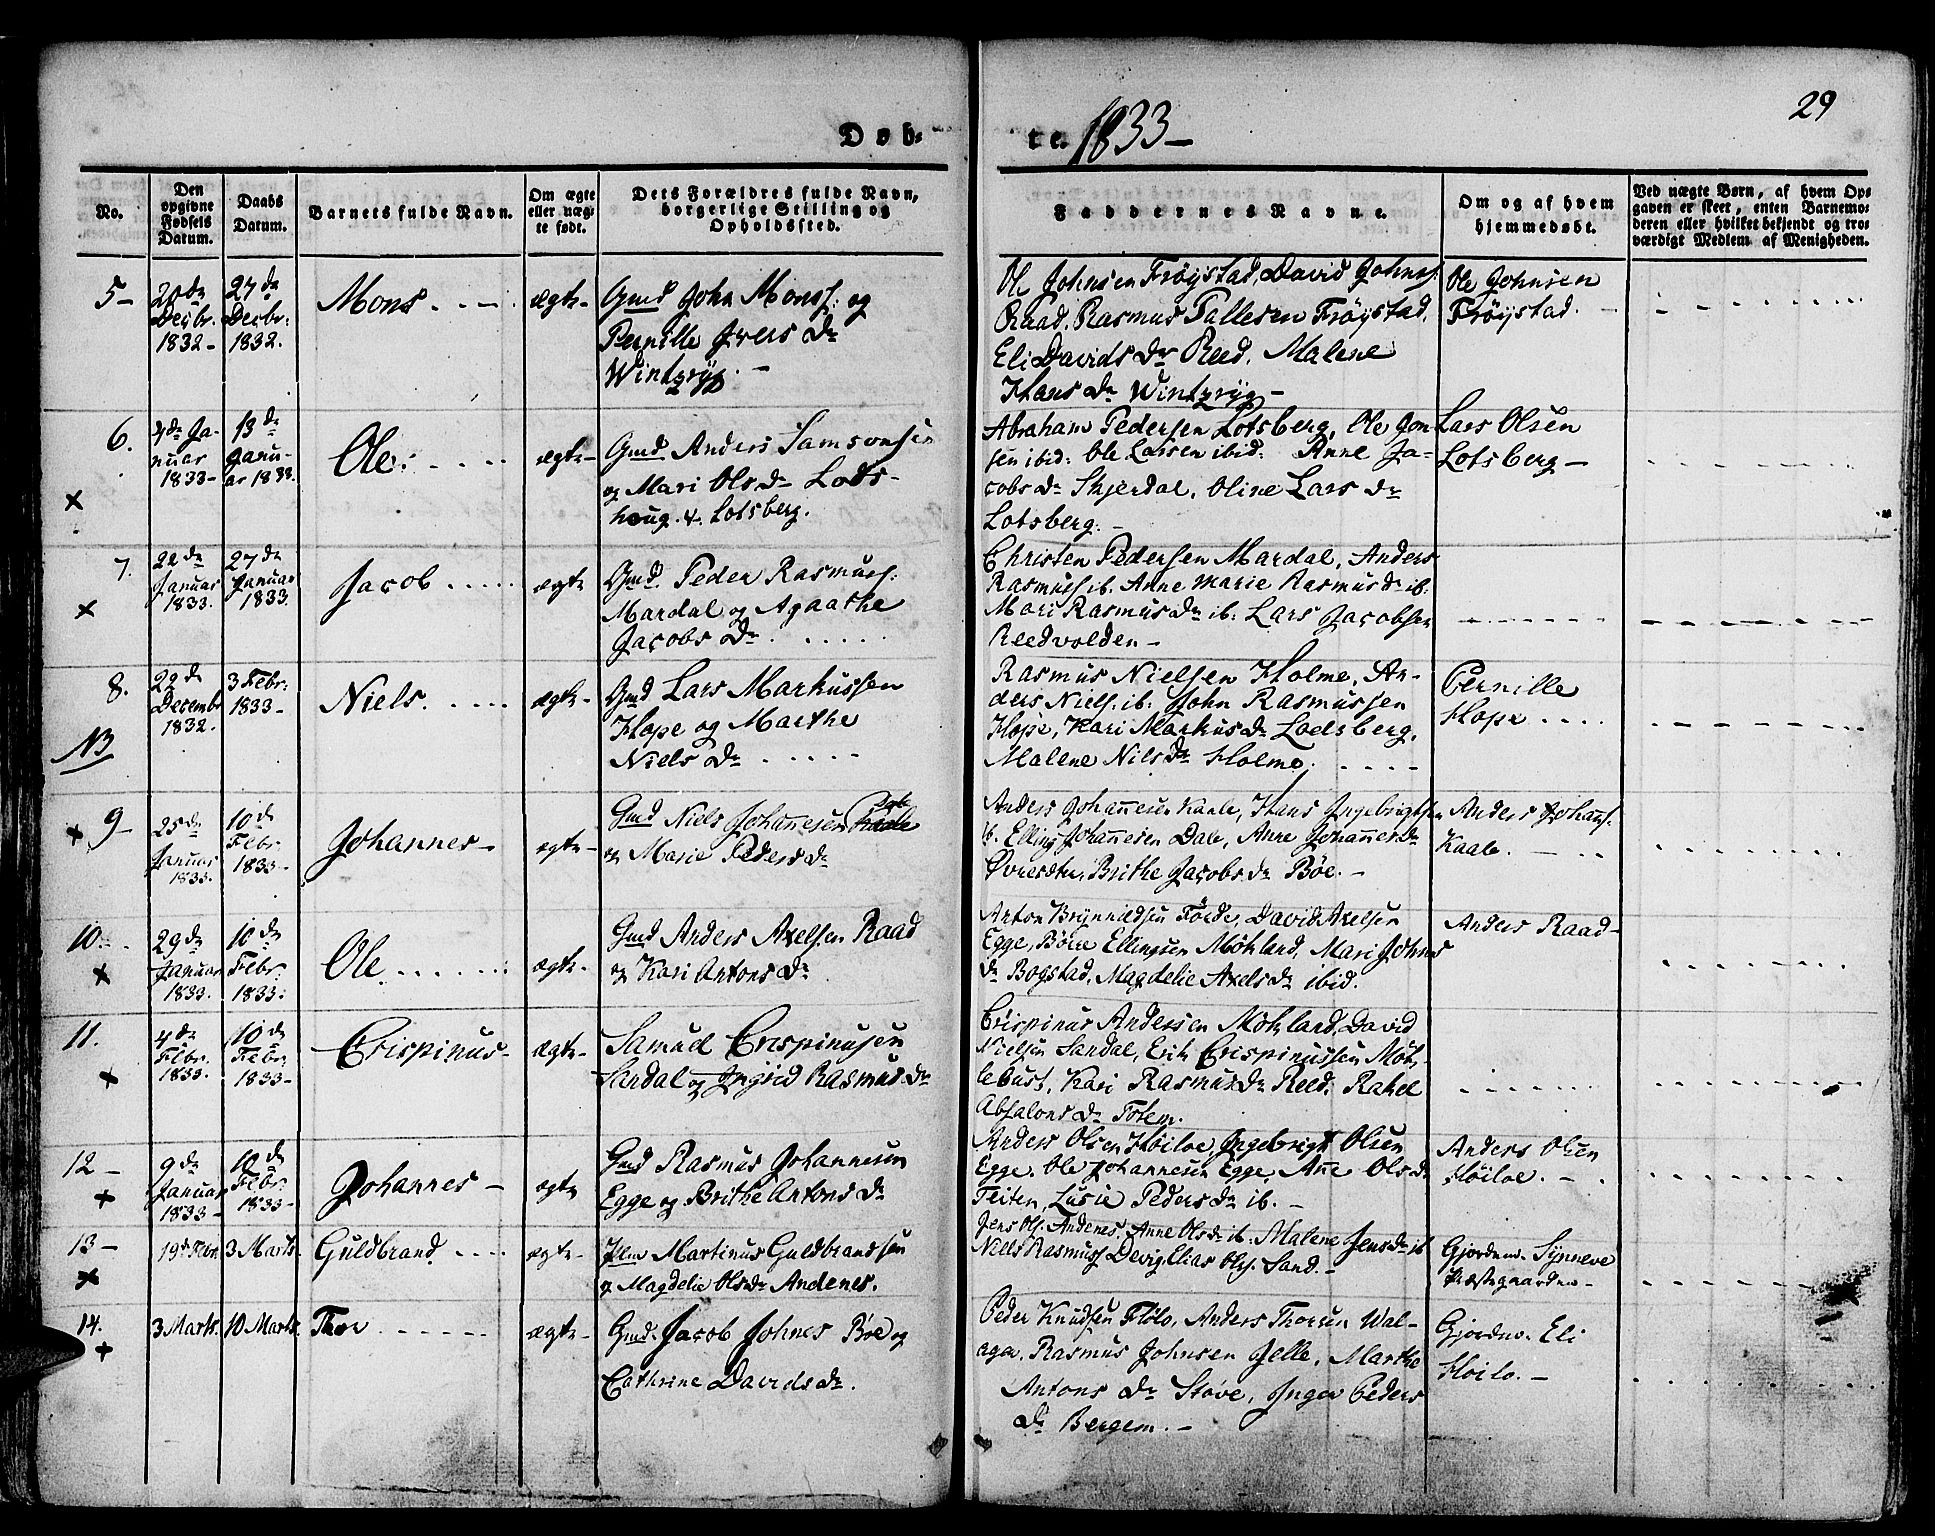 29
Døb-
te. 1833-
No.
Den opgivne Fødsels Datum.
Daabs Datum.
Barnets fulde Navn.
Om ægte eller uægte født.
Dets Forældres fulde Navn, borgerlige Stilling og Opholdssted.
Faddernes Navne.
Om og af hvem hjemmedøbt.
Ved uægte Børn, af hvem Opgaven er skeet, enten Barnemoderen eller hvilket bekjendt og troværdigt Medlem af Menigheden.
5-
Decbr.
1832-
27de
Decbr:
1832.
Mons.
ægte-
Gmd John Monss: og
Pernille Ivers Dr
Wintzryg. -
Ole Johnsen Frøystad, David Johnss:
Raad, Rasmus Pallesen Frøystad,
Eli Davids Dr Reed, Malene
Hans Dr Wintzryg-
Ole Johnsen
Frøystad.
6.
4de Ja-
nuar
1833-
13de
Janu-
ar 1833.
Ole.
ægte-
Gmd Anders Samsonsen
og Mari Ols Dr Lods-
houg. v. Lotsberg.
Abraham Pedersen Lotsberg, Ole Jon-
sen ibid: Ole Larsen ibid: Anne Ja-
cobs Dr Skjerdal, Oline Lars Dr
Lotsberg. -
Lars Olsen
Lotsberg-
7.
22de
Januar
1833.
27de
Januar
1833.
Jacob
ægte
Gmd. Peder Rasmuss:
Mardal og Agaathe
Jacobs Dr.
Christen Pedersen Mardal, Anders
Rasmuss ib. Anne Marie Rasmus Dr ib:
Mari Rasmus Dr ib: Lars Jacobsen
Reedvolden-
8.
NB
29de
Decembr
1832.
3 Febr:
1833-
Niels.
ægte-
Gmd Lars Markussen
Hope og Marthe
Niels Dr
Rasmus Nielsen Holme, An-
ders Niels. ib. John Rasmussen
Hope, Kari Markus Dr Lodsberg,
Malene Nils Dr Holme.
Pernille
Hope
9-
25de
Januar
1833.
10de
Febr.
1833-
Johannes-
ægte-
Gmd Niels Johannesen
og Marie Peders Dr
Anders Johannesen Kaale, Hans Ingebrigtsen
ib. Elling Johannesen Dale, Anne Johannes Dr
Brithe Jacobs Dr Bøe. -
Anders Johans.
Kaale.
10.
29de
Januar
1833.
10de
Febr.
1833.
Ole
ægte-
Gmd Anders Axelsen Raad
og Kari Antons Dr
Anton Brynnildsen Førde, David Axelsen
Egge, Børre Ellingsen Møkland, Mari Johns
Dr Bogstad, Magdelie Axels Dr ibid.
Anders Raad-
11.
4de
Febr.
1833.
10de
Febr.
1833-
Crispinus-
ægte-
Samuel Crispinusen
Sandal og Ingrid Rasmus Dr
Crispinus Andersen Møkland, David
Nielsen Sandal, Erik Crispinussen Møk-
lebust, Kari Rasmus Dr Reed, Rahel
Absalons Dr Fotem.
12-
9de
Januar
1833-
10de
Febr.
1833-
Johannes-
ægte
Gmd Rasmus Johannesen
Egge og Brithe Antons Dr
Anders Olsen Høiloe, Ingebrigt Olsen
Egge, Ole Johannesen Egge, Anne Ols Dr
Feiten, Lusie Peders Dr ib. -
Anders Olsen
Høiloe.
13-
19de Febr.
3 Marts.
Guldbrand
ægte-
Martinus Guldbrandsen
og Magdelie Ols Dr Andenes.
Jens Ols. Andenes, Anne Ols Dr ib. Malene Jens Dr ib
Niels Rasmuss Devig, Elias Ols. Sand. -
Gjordm. Synneve
Præstegaarden-
14.
3 Marts.
10 Marts.
Thor
ægte-
Gmd. Jacob Johnes Bøe og
Cathrine Davids Dr.
Peder Knudsen Fløto, Anders Thorsen Wal-
ager, Rasmus Johnsen Jelle, Marthe
Antons Dr Støve, Inger Peders
Dr Bergem. -
Gjordm. Eli
Høilo. -